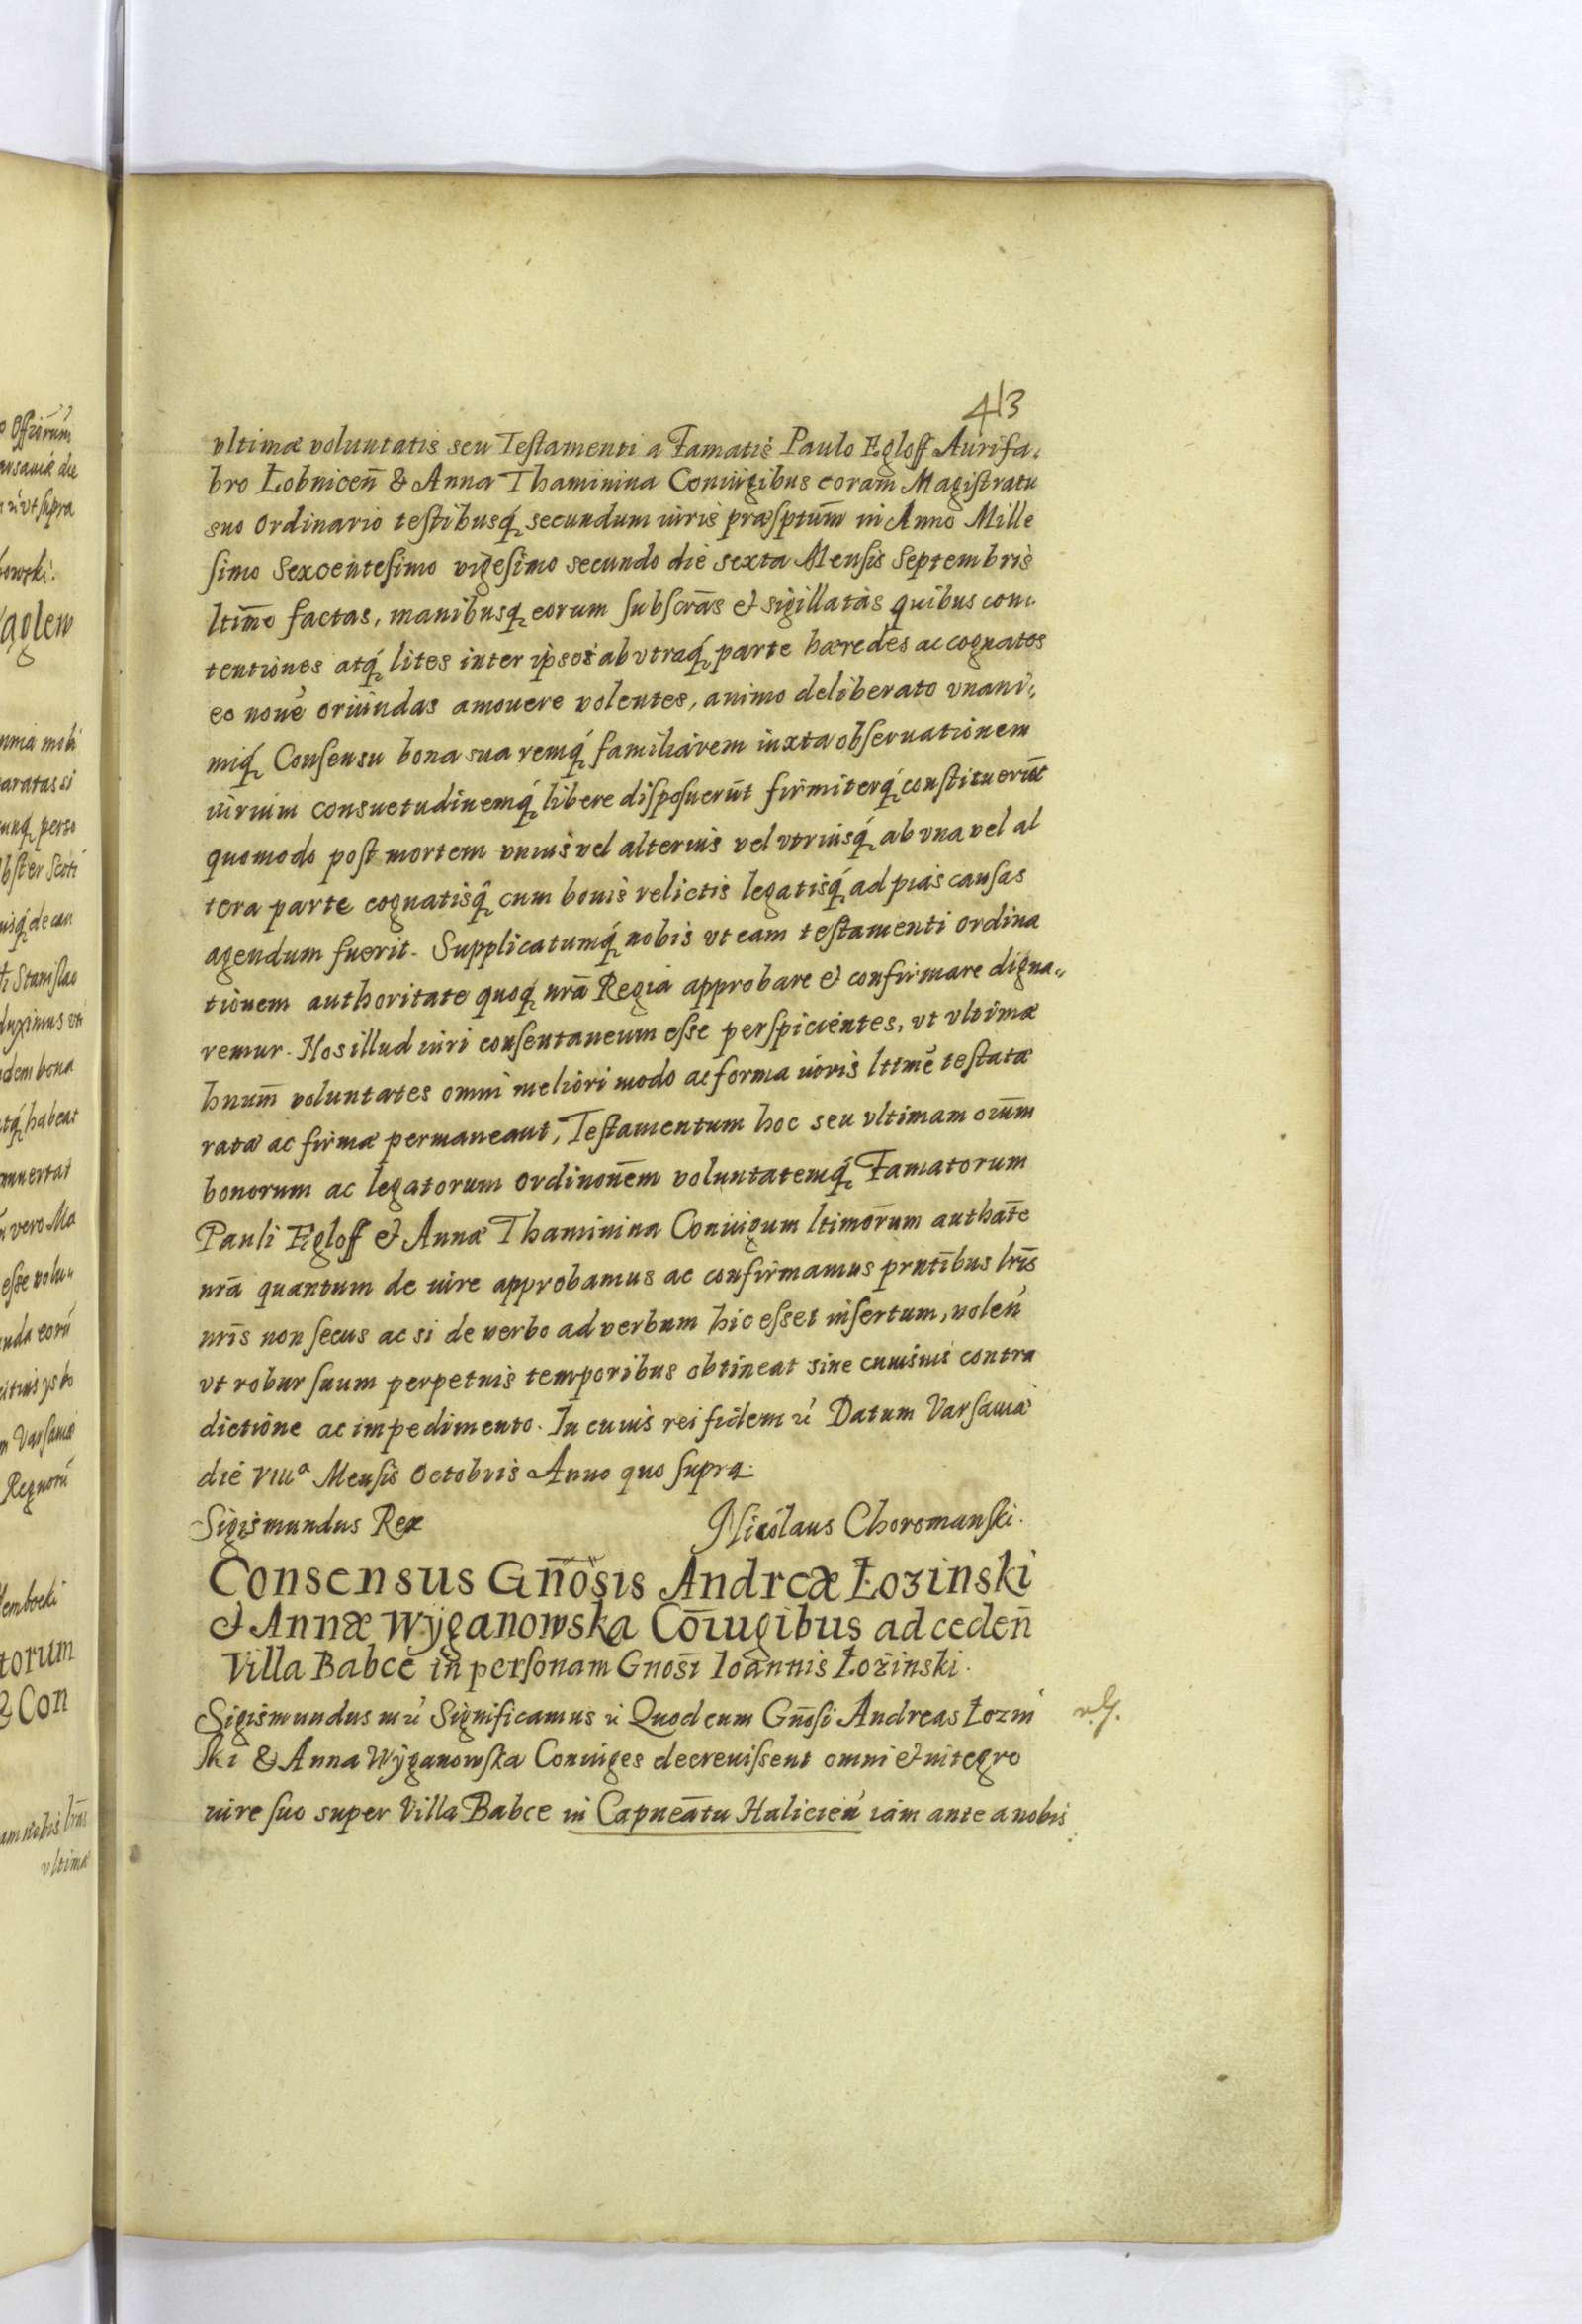 413
vltimæ voluntatis seu Testamenti a Famatis Paulo Egloff Aurifa,
bro Łobnicen̄ & Anna Thaminina Coniugibus coram̄ Magistratu
suo ordinario testibusq́ secundum iuris præsptum̄ in Anno Mille
simo Sexcentesimo vigesimo secundo die sexta Mensis Septembris
ltim̄e factas, manibusq́ eorum subscr̄as et sigillatas quibus con,
tentiones atq́ lites inter ipsos ab vtraq́ parte hæredes ac cognatos
eo nouè oriundas amouere volentes, animo deliberato vnani,
miq́ Consensu bona sua remq́ familiarem iuxta obseruationem
iurium consuetudinemq́ libere disposuerūt firmiterq́ constituerūt
quomodo post mortem vnius vel alterius vel vtriusq́ ab vna vel al
tera parte cognatisq̂ cum bonis relictis legatisq́ ad pias causas
agendum fuerit. Supplicatumq́ nobis vt eam testamenti ordina
tionem authoritate quoq́ nrā Regia approbare et confirmare digna,
remur. Nos illud iuri consentaneum esse perspicientes, vt vltimæ
hnum̄ voluntates omni meliori modo ac forma iuris lttmē testatæ
ratæ ac firmæ permaneant, Testamentum hoc seu vltimam oīum
bonorum ac legatorum ordinon̄em voluntatemq́ Famatorum
Pauli Egloff et Annæ Thaminina Coniugum ltimōrum authāte
nrā quantum de iure approbamus ac confirmamus prntībus lrīs
nrīs non secus ac si de verbo ad verbum hic esset insertum, volen̄
vt robur suum perpetuis temporibus obtineat sine cuiusuis contra
dictione ac impedimento. In cuius rei fidem ũ Datum Varsauiæ
die VIIIª Mensis Octobris Anno quo supra.
Sigismundus Rex Nicolaus Choromanski.
Consensus Gn̄osis Andreæ Łozinski
et Annæ Wÿganowska Cōiugibus ad ceden̄
Villa Babcè in personam Gnosī Ioannis Łozinski.
Sigismundus ũ Significamus ũ Quod cum Gn̄osi Andreas Łozin
ski & Anna Wÿganowska Coniuges decreuissent omni et integro
iure suo super Villa Babce in Capneātu Halicien̄ iam ante a nobis